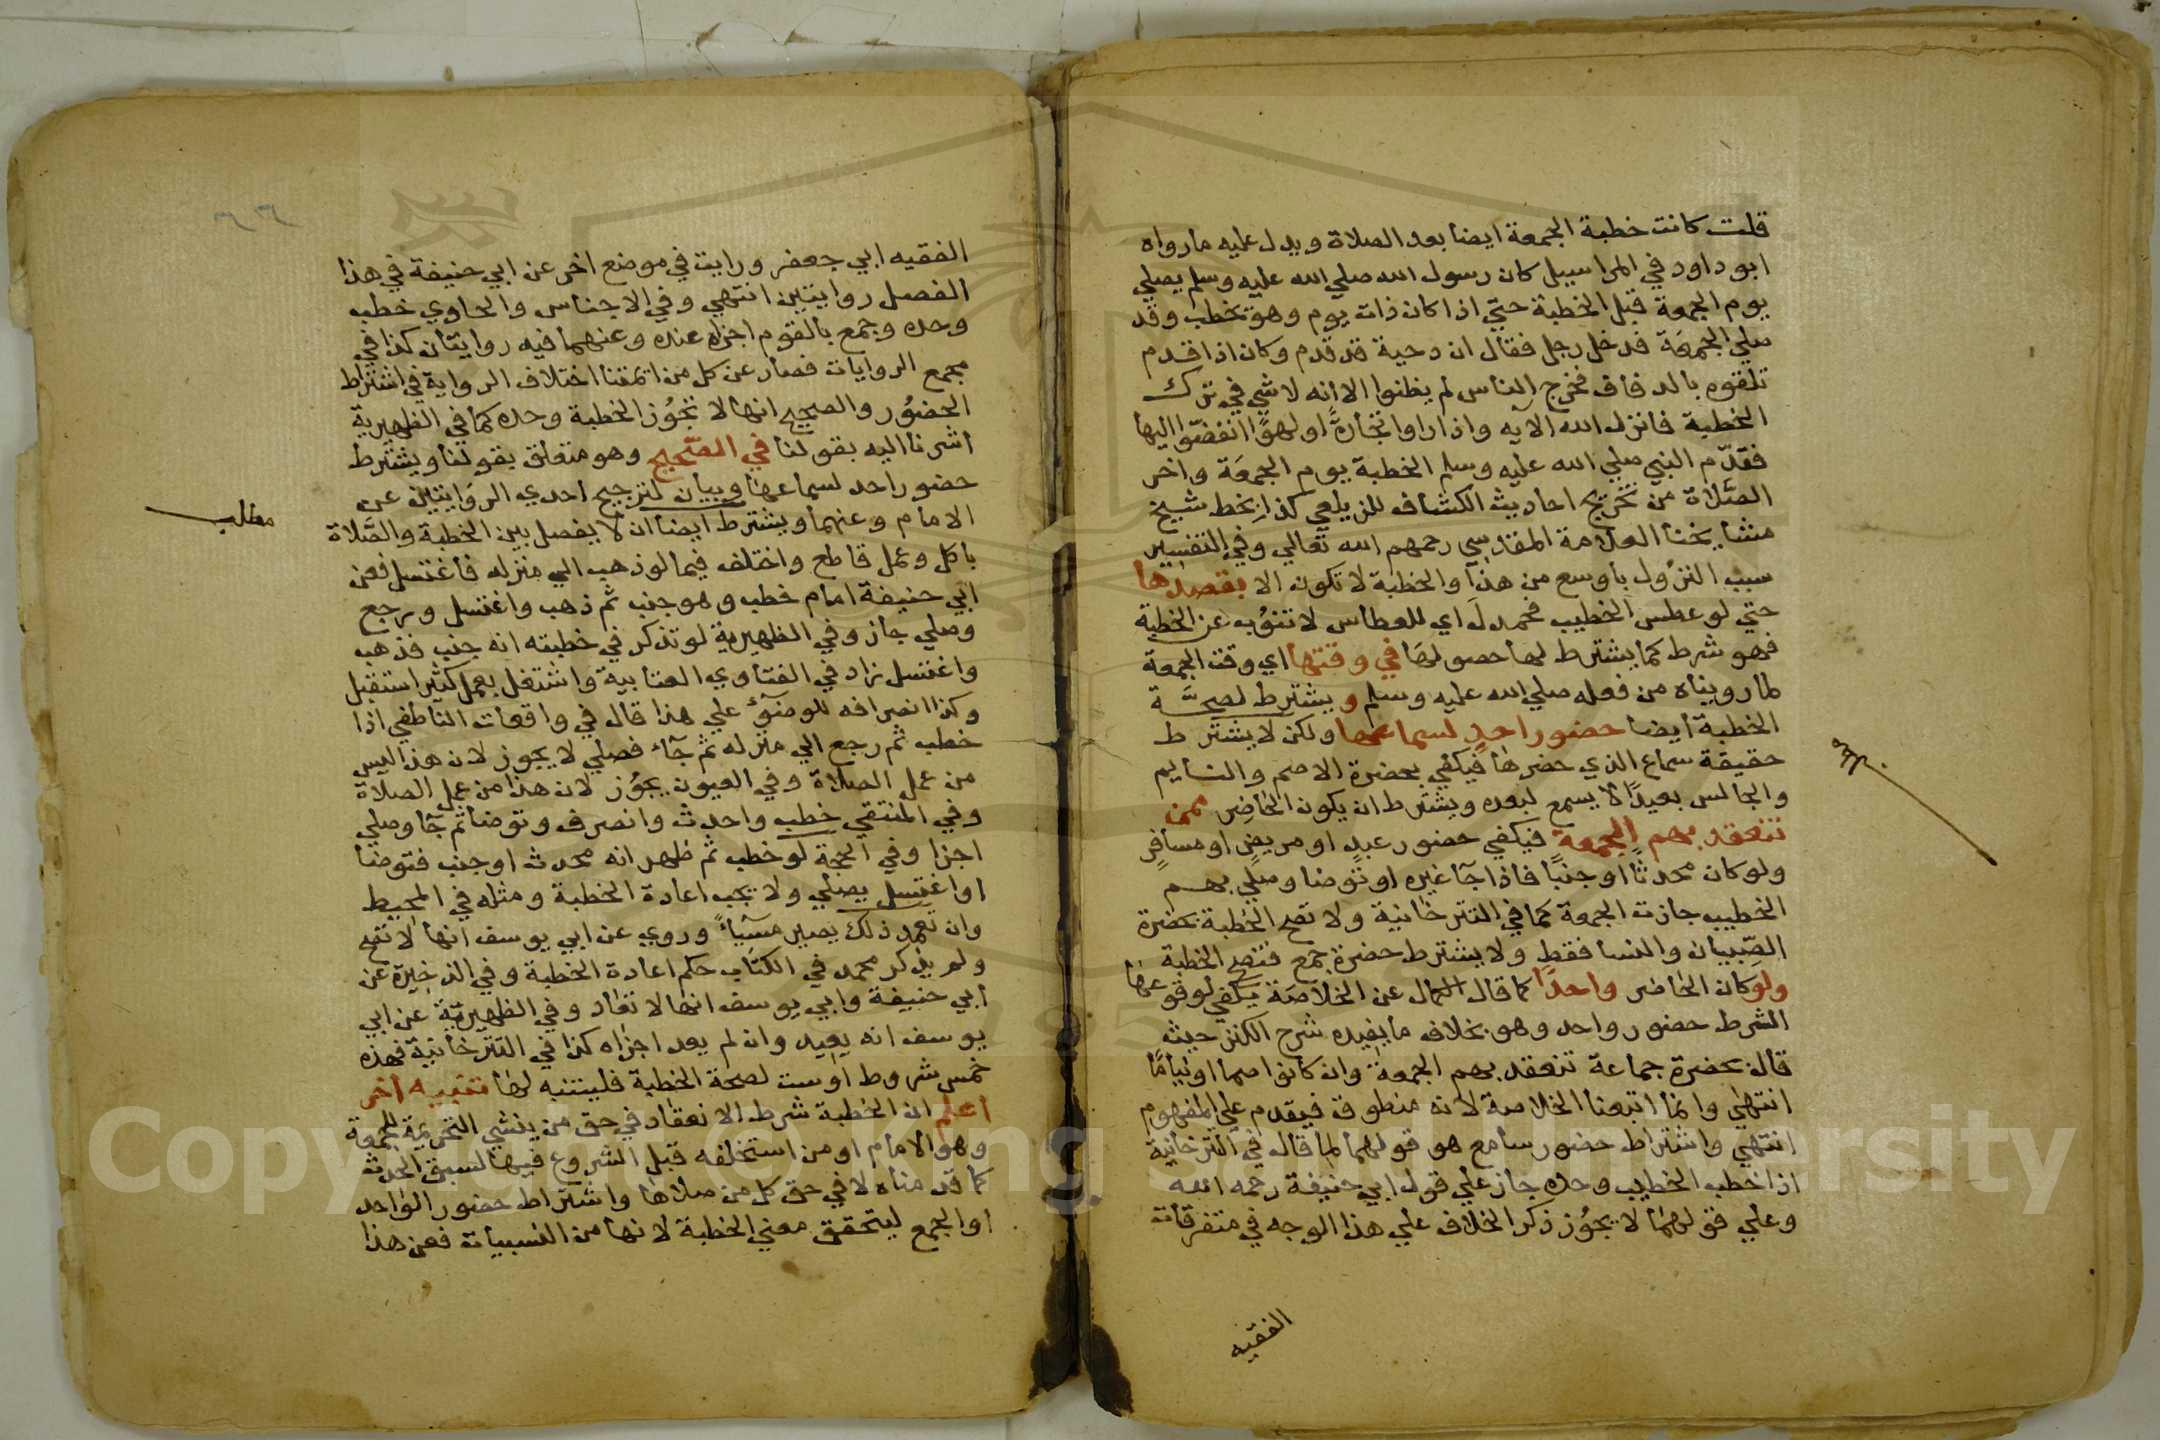 قلت كانت خطبة الجمعة ايضا بعد الصلاة ويدل عليه مارواه
ابو داود في المراسيل كان رسول الله صلي الله عليه وسلم يصلي
يوم الجمعة قبل الخطبة حتي اذا كان ذات يوم وهو يخطب وقد
صلي الجمعة فدخل رجل فقال ان دحية قد قدم وكان اذا قدم
تلقوه بالدفاف فخرج الناس لم يظنوا الا انه لا شي في ترك
الخطبة فانزل الله الآيه واذا راوا تجارةً او لهوًا انفضّوا اليها
فقدّم النبي صلي الله عليه وسلم الخطبة يوم الجمعَة واخر
الصَّلاة من تخريج احاديث الكشاف للزيلعي كذا بخط شيخ
مشايخنا العلامة المقدسي رحمهم الله تعالي وفي التفسير
سبب النزول باوسع من هذا والخطبة لا تكون الا بقصدها
حتي لو عطس الخطيب فحمد لَه اي للعطاس لا تنوُب عن الخطبة
فهو شرط كما يشترط لها حصولها في وقتها اي وقت الجمعة
لما رويناه من فعله صلي الله عليه وسلم ويشترط لصحَّة
الخطبة ايضا حضور احدٍ لسماعها ولكن لا يشترط
حقيقة سماع الذي حضرها فيكفي بحضرة الاصم والنايم
والجالس بعيدًا لا يسمع لبعده ويشترط ان يكون الحاضِر ممن
تنعقد بهم الجمعة فيكفي حضور عبدٍ او مريضٍ او مسافرٍ
ولو كان محدثًا او جنبًا فاذا جآ غيره او توضا وصلي بهم
الخطيب جازت الجمعة كما في التترخانية ولا تصح الخطبة بحضرة
الصّبيان والنسا فقط ولا يشترط حضرة جمع فتصح الخطبة
ولو كان الحاضر واحدًا كما قال الكمال عن الخلاصَة يكفي لوقوعها
الشرط حضور واحد وهو بخلاف ما يفيده شرح الكنز حيث
قال بحضرة جماعة تنعقد بهم الجمعة وان كانوا صما او نيامًا
انتهي وانما اتبعنا الخلاصة لانه منطوق فيقدم علي المفهوم
انتهي واشتراط حضور سامع هو قولهما لما قال في التترخانية
اذا خطب الخطيب وحده جاز علي قول ابي حنيفة رحمه الله
وعلي قولهما لا يجوُز ذكر الخلاف علي هذا الوجه في متفرقات
الفقيه
الفقيه ابي جعفر ورايت في موضع اخر عن ابي حنيفة في هذا
الفصل روايتين انتهي وفي الاجناس والحاوي خطب
وحده وجمع بالقوم اجزاه عنده وعنهما فيه روايتان كذا في
مجمع الروايات فصار عن كل من ايمتنا اختلاف الرواية في اشتراط
الحضُور والصحيح انها لا تجُوز الخطبة وحده كما في الظهيرية
اشرنا اليه بقولنا في الصّحيح وهو متعلق بقولنا ويشترط
حضور احد لسماعها وبيان لترجيح احدي الروايتين عن
الامام وعنهما ويشترط ايضا ان لا يفصل بين الخطبة والصَّلاة
باكل وعمل قاطع واختلف فيما لو ذهب الي منزله فاغتسل فعن
ابي حنيفة امام خطب وهو جنب ثم ذهب واغتسل ورجع
وصلي جاز وفي الظهيرية لو تذكر في خطبته انه جنب فذهب
واغتسل زاد في الفتاوي العتابية واشتغل بعمل كثير استقبل
وكذا انصرافه للوضوٓء علي هذا قال في واقعات الناطفي اذا
خطب ثم رجع الي منزله ثم جآء فصلي لا يجوز لان هذا ليس
من عمل الصلاة وفي العيون يجوُز لان هذا من عمل الصلاة
وفي المنتقي خطب واحدث وانصرف وتوضا ثم جآ وصلي
اجزا وفي الحجة لو خطب ثم ظهر انه محدث او جنب فتوضا
او اغتسل يصلي ولا تجب اعادة الخطبة ومثله في المحيط
وان تعمد ذلك يصير مسيآءً وروي عن ابي يوسف انها لا تصح
ولم يذكر محمد في الكتاب حكم اعادة الخطبة وفي الذخيرة عن
ابي حنيفة وابي يوسف انها لا تعاد وفي الظهيريّة عن ابي
يوسف انه يعيد وان لم يعد اجزاه كذا في التترخانية فهذه
خمس شروط او ست لصحة الخطبة فليتنبه لها تنبيه اخر
اعلم ان الخطبة شرط الانعقاد في حق من ينشي التحريمة للجمعة
وهو الامام او من استخلفه قبل الشروع فيها لسبق الحدث
كما قدمناه لا في حق كل من صلاها واشتراط حضور الواحد
او الجمع ليتحقق معني الخطبة لانها من النسبيات فعن هذا
مطلب
Copyright © King Saud University